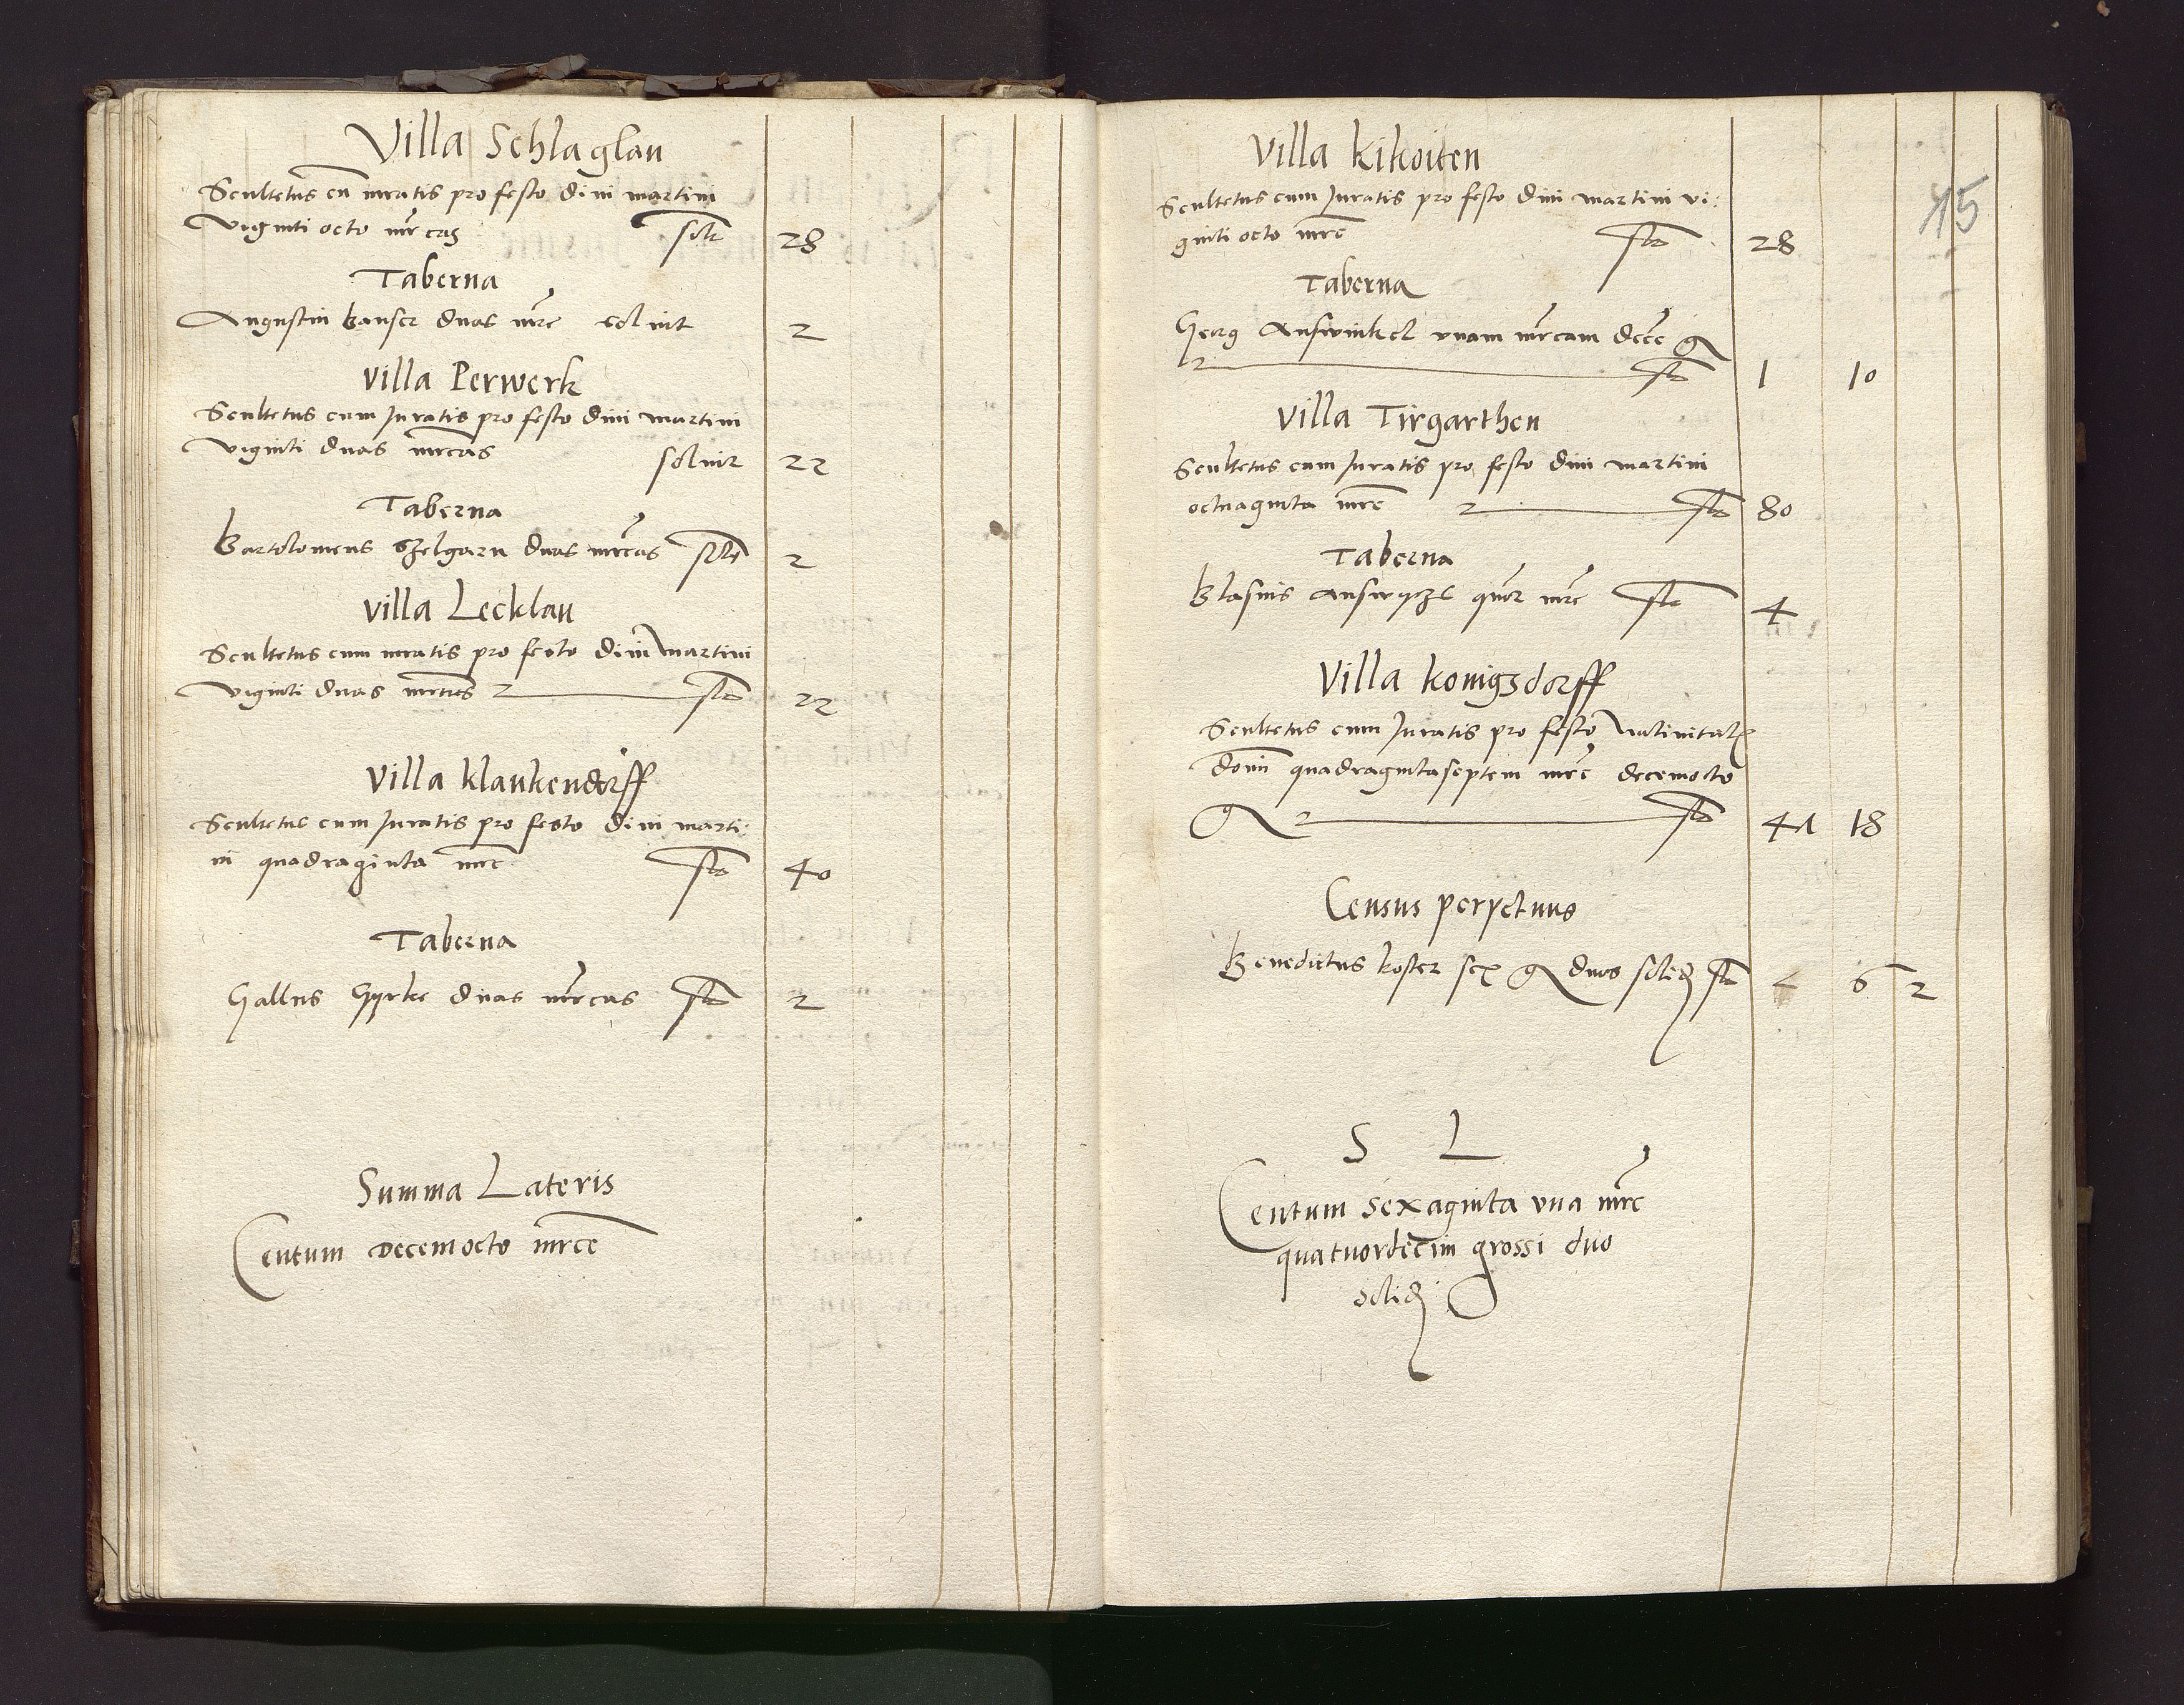 Villa Schlaglau
Scultetus cu iuratis pro festo divi martini
viginti octo mrcas solt 28
Taberna
Augustin Banser duas mrc solvit 2
Villa Perwerk
Scultetus cum Juratis pro festo divi martini
viginti duas mrcas solvit 22
Taberna
Bartolomeus duas mrcas solt 2
Villa Lecklau
Scultetus cum iuratis pro festo divi martini
viginti duas mrcas st 22
Villa Klaukendorff
Scultetus cum Juratis pro festo divi marti:
ni quadraginta mrc st 40
Taberna
Gallus Gyrke duas mrcas st 2
Summa Lateris
Centum decemocto mrce
15
Villa Kikoiten
Scultetus cum Juratis pro festo divi martini vi:
ginti octo mrc st 28
Taberna
Georg Answinkel unam mrcam dece g
st 1 10
Villa Tirgarthen
Scultetus cum Juratis pro festo divi martini
octuaginta mrc st 80
Taberna
Blasius quor mrc st 4
Villa Konigsdorff
Scultetus cum Juratis pro festo nativitatis
domi quadragintaseptem mrc decemocto
g st 47 18
Census perpetuus
Benedictus Koster sex g duos solid st 6 2
S L
Centum sexaginta una mrc
quatuordecim grossi duo
solid